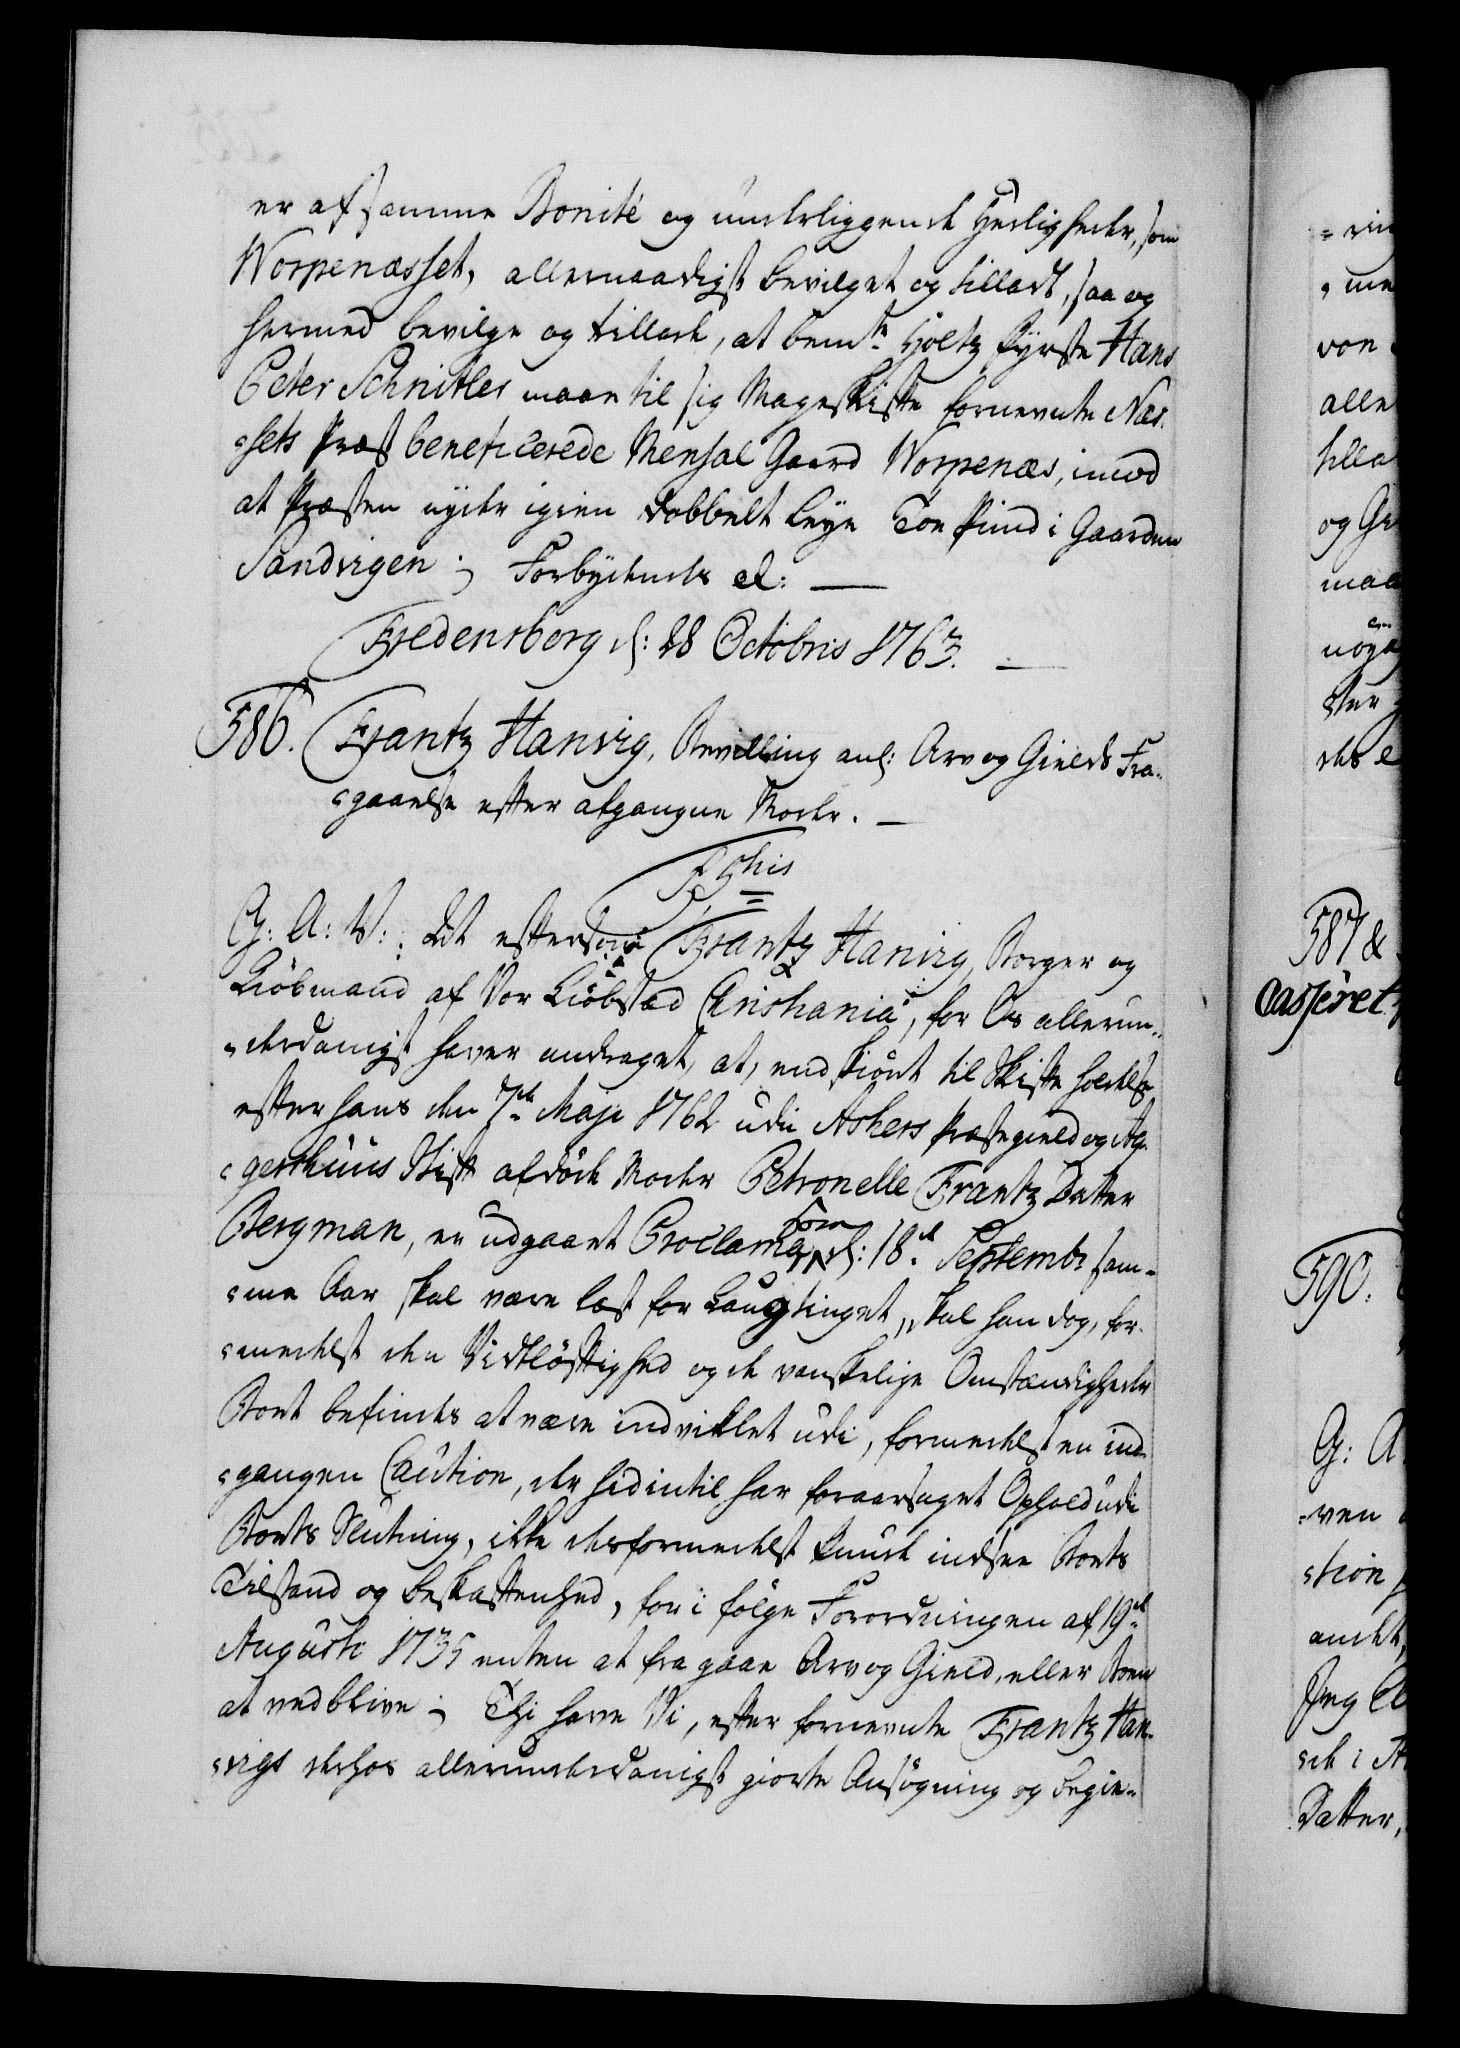 er af samme Bonité og underliggende Herligheder, som
Worpenæsset, allernaadigst bevilget og tilladt, saa og
hermed bevilge og tillade, at bemte Holtz Første Hans
Peter Schnitler maae til sig Mageskifte fornevnte Næs-
sets Præst beneficerede Mensal Gaard Worpenæs, imod
at Præsten nyder igien dobbelt leye Toe Pund i Gaarden
Sandvigen; Forbydendes el: —
Fredensborg d: 28 Octobris 1763. —
586. Frantz Hanvig, Bevilling anl: Arv og Gields Fra-
gaaelse efter afgangne Moder. —
F 5this
G: A: V: Dt eftersom Frantz Hanvig, Borger og
Kiöbmand af Vor Kiöbstad Christiania, for Os allerun-
derdanigst haver andraget, at, endskiönt til Skifte holdelse
efter hans den 7de Maji 1762 udi Askers Præstegield og Ag-
gershuus Stift afdöde Moder Petronelle Frantz Datter
Bergman, er udgaaet Proclama, som d: 18de Septembr sam-
me Aar skal være læst for Laugtinget, skal han dog, for-
medelst den Vidtlöftighed og de vanskelige Omstændigheder
Boet befindes at være indviklet udi, formedelst en ind-
gangen Caution, der hidintil har foraarsaget Ophold udi
Boets Slutning, ikke desformedelst kunde indsee Boets
Tilstand og beskaffenhed, for i fölge Forordningen af 19de
Augusti 1735 enten at fragaae Arv og Gield, eller Boen
at vedblive; Thi have Vi, efter fornevnte Frantz Han-
vigs derhos allerunderdanigst giorte Ansögning og begie-
587 &
Casseret
590.
G: A
Datter,